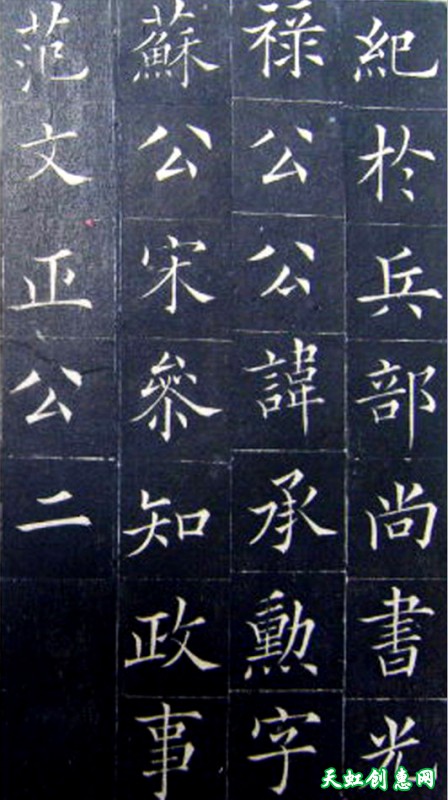 紀於兵部尚書光
祿公公諱承勳字
蘇公宋參知政事
范文正公二
天虹创惠网